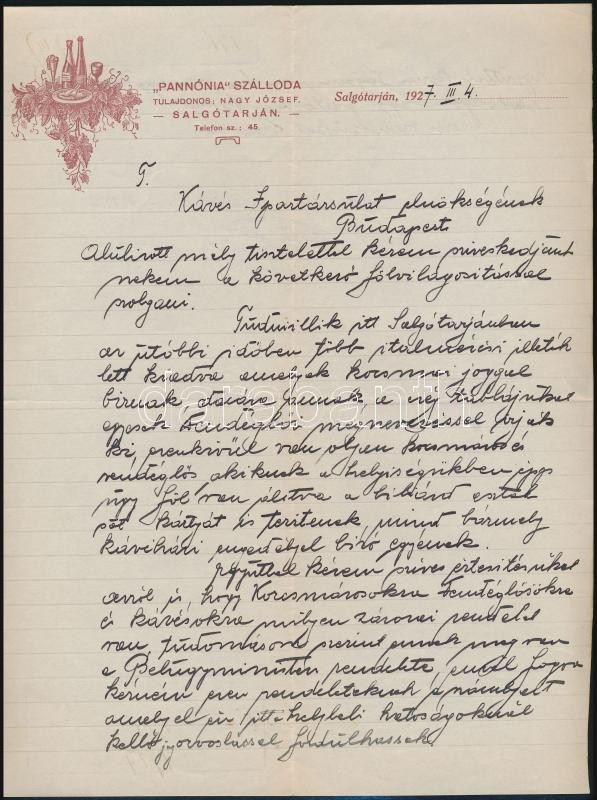 „PANNÓNIA" SZÁLLODA
TULAJDONOS: NAGY JÓZSEF.
— SALGÓTARJÁN. —
Telefon sz.: 45.
Salgótarján, 1927. III. 4.
T.
Kávés Ipartársulat elnökségének
Budapest
Alúlirott mély tisztelettel kérem sziveskedjönt
nekem a következő fölvilágositással
szolgani.
Tudniillik itt Salgótarjánban
az útóbbi időben több italmérési illeték
lett kiadva amelyek kocsmai joggal
birnak, dacára annak a cég táblájukel
egyesek Vendéglős megnevezéssel irják
ki, ezenkivül van olyan kocsmáros és
vendéglős akiknek a helyiségükben épp
úgy föl van álitva a biliárd asztal
sőt kártyát is teritenek, mind bármely
kávéházi engedéljel biró egyének.
Egyuttal kérem szives értesitésüket
arról is, hogy Korcsmárosokra Vendéglősökre
és kávésokra milyen zárorai rendelet
van, tudomásom szerint ennek meg van
a Belügyministeri rendelete,
kérném ezen rendeleteknek a számjait
amelyel én itt helybeli hatóságoknál
kellő gyorvoslással fordúlhassak
databanti